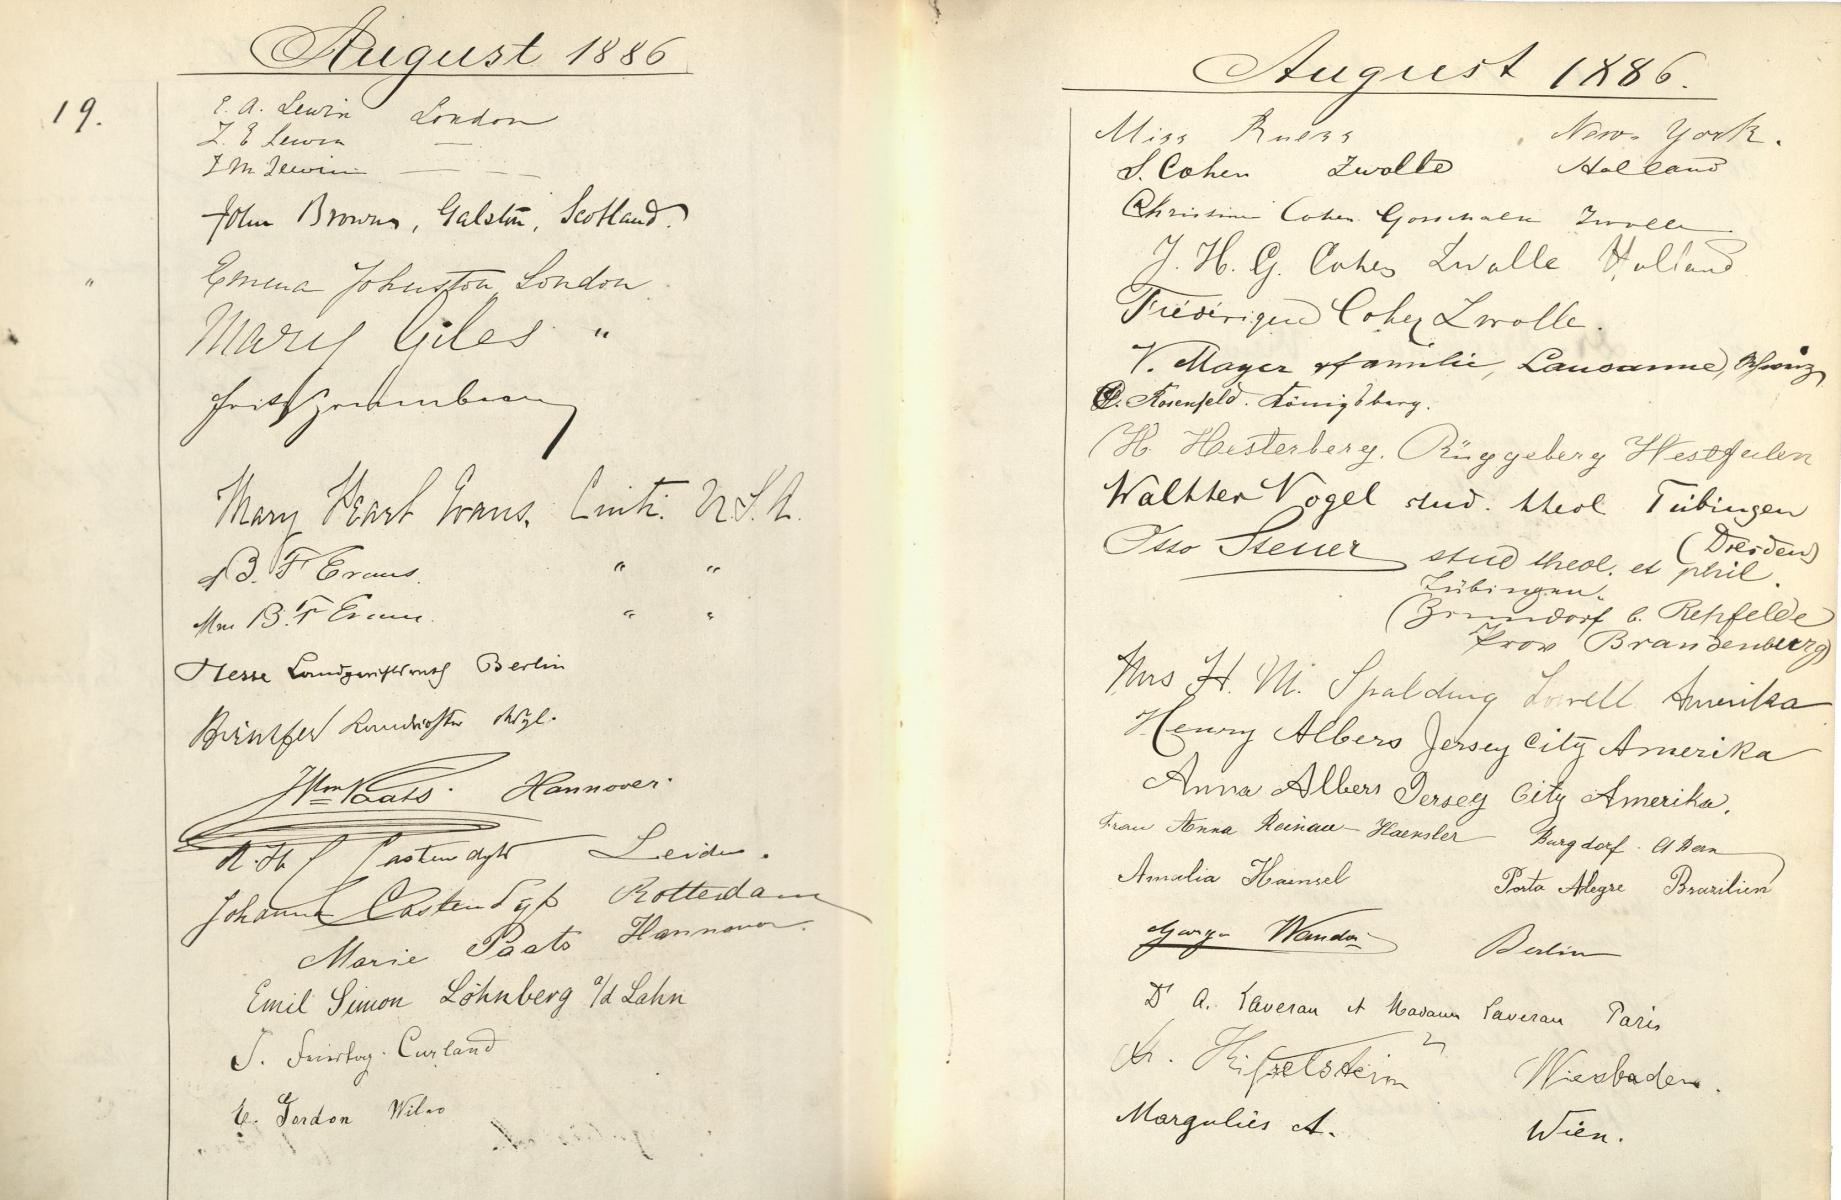 August 1886
19.
E. A. Lewin London
L. E Lewin —
J M Lewin — — —
John Brown, Galston, Scotland.
" Emma Johnston London
Mary Giles "
Fritz
Mary Pearl Evans, Cinti. U.S.A.
B. F Evans. " "
Mrs B. F Evans. " "
Hesse Landgerichtsrath Berlin
Landrichter
Wm Paats. Hannover.
R. Th. Castendijk Leiden.
Johanna Castendijk Rotterdam
Marie Paats Hannover.
Emil Simon Löhnberg a/d Lahn
J. Feiertag. Curland
E. Gordon Wilno
August 1886.
Miss New York.
S. Cohen Zwolle Holland
Christine Cohen Gosschalk Zwolle
J. H. G. Cohen Zwolle Holland
Fréderique Cohen Zwolle.
V. Mayer & familie, Lausanne, Schweiz
Rosenfeld. Königsberg.
H. Hesterberg. Rüggeberg Westfalen
Walther Vogel stud. theol Tübingen
(Dresden)
Otto Steuer stud theol. et phil.
Tübingen.
(Zinndorf b. Rehfelde
Prov Brandenburg)
Mrs H. M. Spalding Lowell Amerika
Henry Albers Jersey City Amerika
Anna Albers Jersey City Amerika.
Frau Anna Reinau-Haensler Burgdorf. Ct Bern
Amalia Haensel Porto Alegre Brazilien
Berlin
Dr A. Laveran et Madame Laveran Paris
Wiesbaden.
Margulies A. Wien.